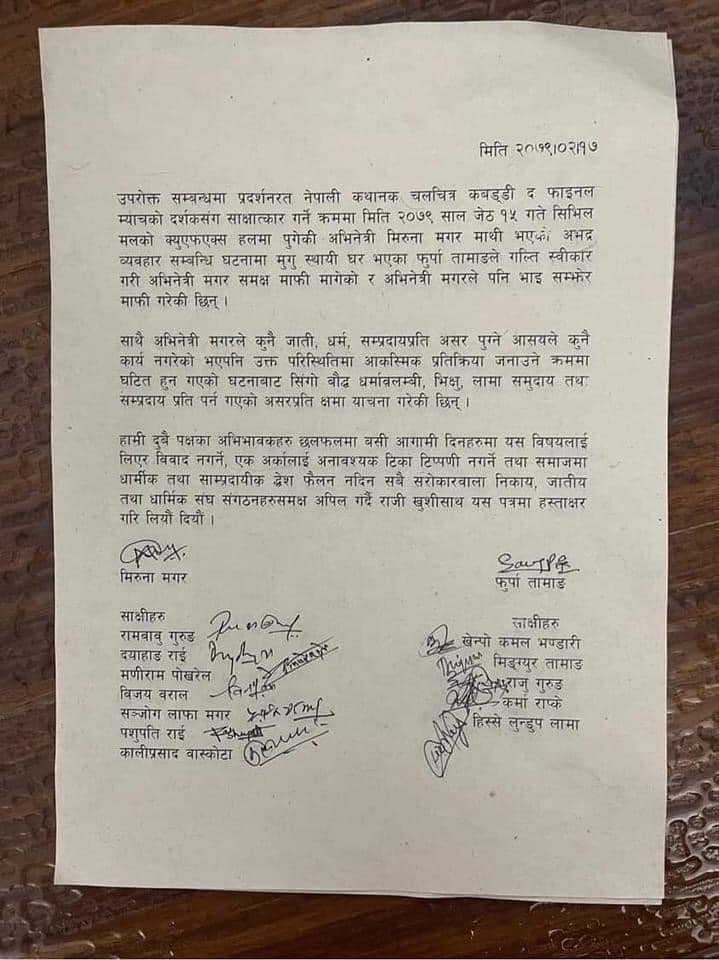 मिति २०७९।०२।१७
उपरोक्त सम्बन्धमा प्रदर्शनरत नेपाली कथानक चलचित्र कबड्डी द फाइनल
म्याचको दर्शकसंग साक्षात्कार गर्ने क्रममा मिति २०७९ साल जेठ १५ गते सिभिल
मलको क्युएफएक्स हलमा पुगेकी अभिनेत्री मिरुना मगर माथी भएको अभद्र
व्यवहार सम्बन्धि घटनामा मुगु स्थायी घर भएका फुर्पा तामाङले गल्ति स्वीकार
गरी अभिनेत्री मगर समक्ष माफी मागेको र अभिनेत्री मगरले पनि भाइ सम्झेर
माफी गरेकी छिन् ।
साथै अभिनेत्री मगरले कुनै जाती, धर्म, सम्प्रदायप्रति असर पुग्ने आसयले कुनै
कार्य नगरेको भएपनि उक्त परिस्थितिमा आकस्मिक प्रतिक्रिया जनाउने क्रममा
घटित हुन गएको घटनाबाट सिंगो बौद्ध धर्मावलम्बी, भिक्षु, लामा समुदाय तथा
सम्प्रदाय प्रति पर्न गएको असरप्रति क्षमा याचना गरेकी छिन् ।
हामी दुबै पक्षका अभिभावकहरु छलफलमा बसी आगामी दिनहरुमा यस विषयलाई
लिएर विवाद नगर्ने, एक अर्कालाई अनावश्यक टिका टिप्पणी नगर्ने तथा समाजमा
धार्मीक तथा साम्प्रदायीक द्वेश फैलन नदिन सबै सरोकारवाला निकाय, जातीय
तथा धार्मिक संघ संगठनहरुसमक्ष अपिल गर्दै राजी खुशीसाथ यस पत्रमा हस्ताक्षर
गरि लियौं दियौं ।
मिरुना मगर
फुर्पा तामाङ
साक्षीहरु
रामबाबु गुरुङ
दयाहाङ राई
मणीराम पोखरेल
विजय बराल
सञ्जोग लाफा मगर
पशुपति राई
कालीप्रसाद वास्कोटा
साक्षीहरु
खेन्पो कमल भण्डारी
मिङग्युर तामाङ
राजु गुरुङ
कर्मा राप्के
हिस्से लुन्डुप लामा